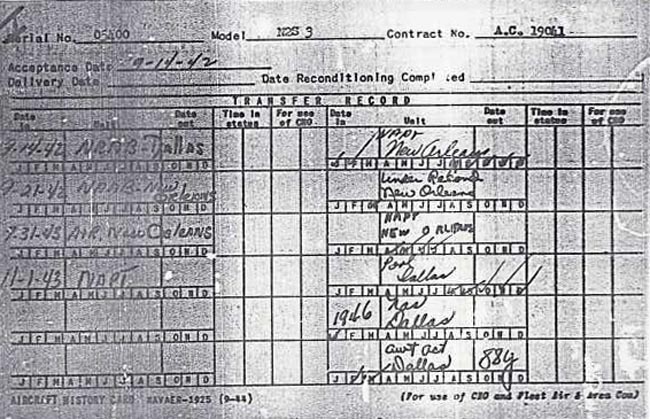 Serial No. 05400 Model N2S 3 Contract No. A.C. 19041
Acceptance Date 9-14-42
Delivery Date Date Reconditioning Completed
TRANSFER RECORD
Date Unit Date out Time in status For use of CNO Date in Unit Date out Time in status For use of CNO
9-14-42 NRAB-Dallas
J F M A M J J A S O N D
NAPT
New Orleans
J F M A M J J A S O N D
9-21-42 NRAB New Orleans
J F M A M J J A S O N D
Under
New Orleans
J F M A M J J A S O N D
7-31-43 New Orleans
J F M A M J J A S O N D
NAPT
NEW ORLEANS
J F M A M J J A S O N D
11-1-43 NAPT
J F M A M J J A S O N D
Pool
Dallas
J F M A M J J A S O N D
J F M A M J J A S O N D
1946 Nas
Dallas
J F M A M J J A S O N D
J F M A M J J A S O N D
awt act
Dallas 88y
J F M A M J J A S O N D
AIRCRAFT HISTORY CARD NAVAER-1925 (9-44) (For use of CNO and Fleet Air & Area Com)